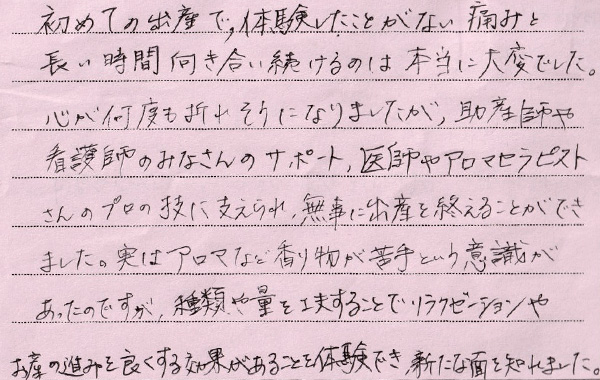 初めての出産で、体験したことがない痛みと
長い時間向き合い続けるのは本当に大変でした。
心が何度も折れそうになりましたが、助産師や
看護師のみなさんのサポート、医師やアロマセラピスト
さんのプロの技に支えられ、無事に出産を終えることができ
ました。実はアロマなど香り物が苦手という意識が
あったのですが、種類や量を工夫することでリラクゼーションや
お産の進みを良くする効果があることを体験でき、新たな面を知れました。